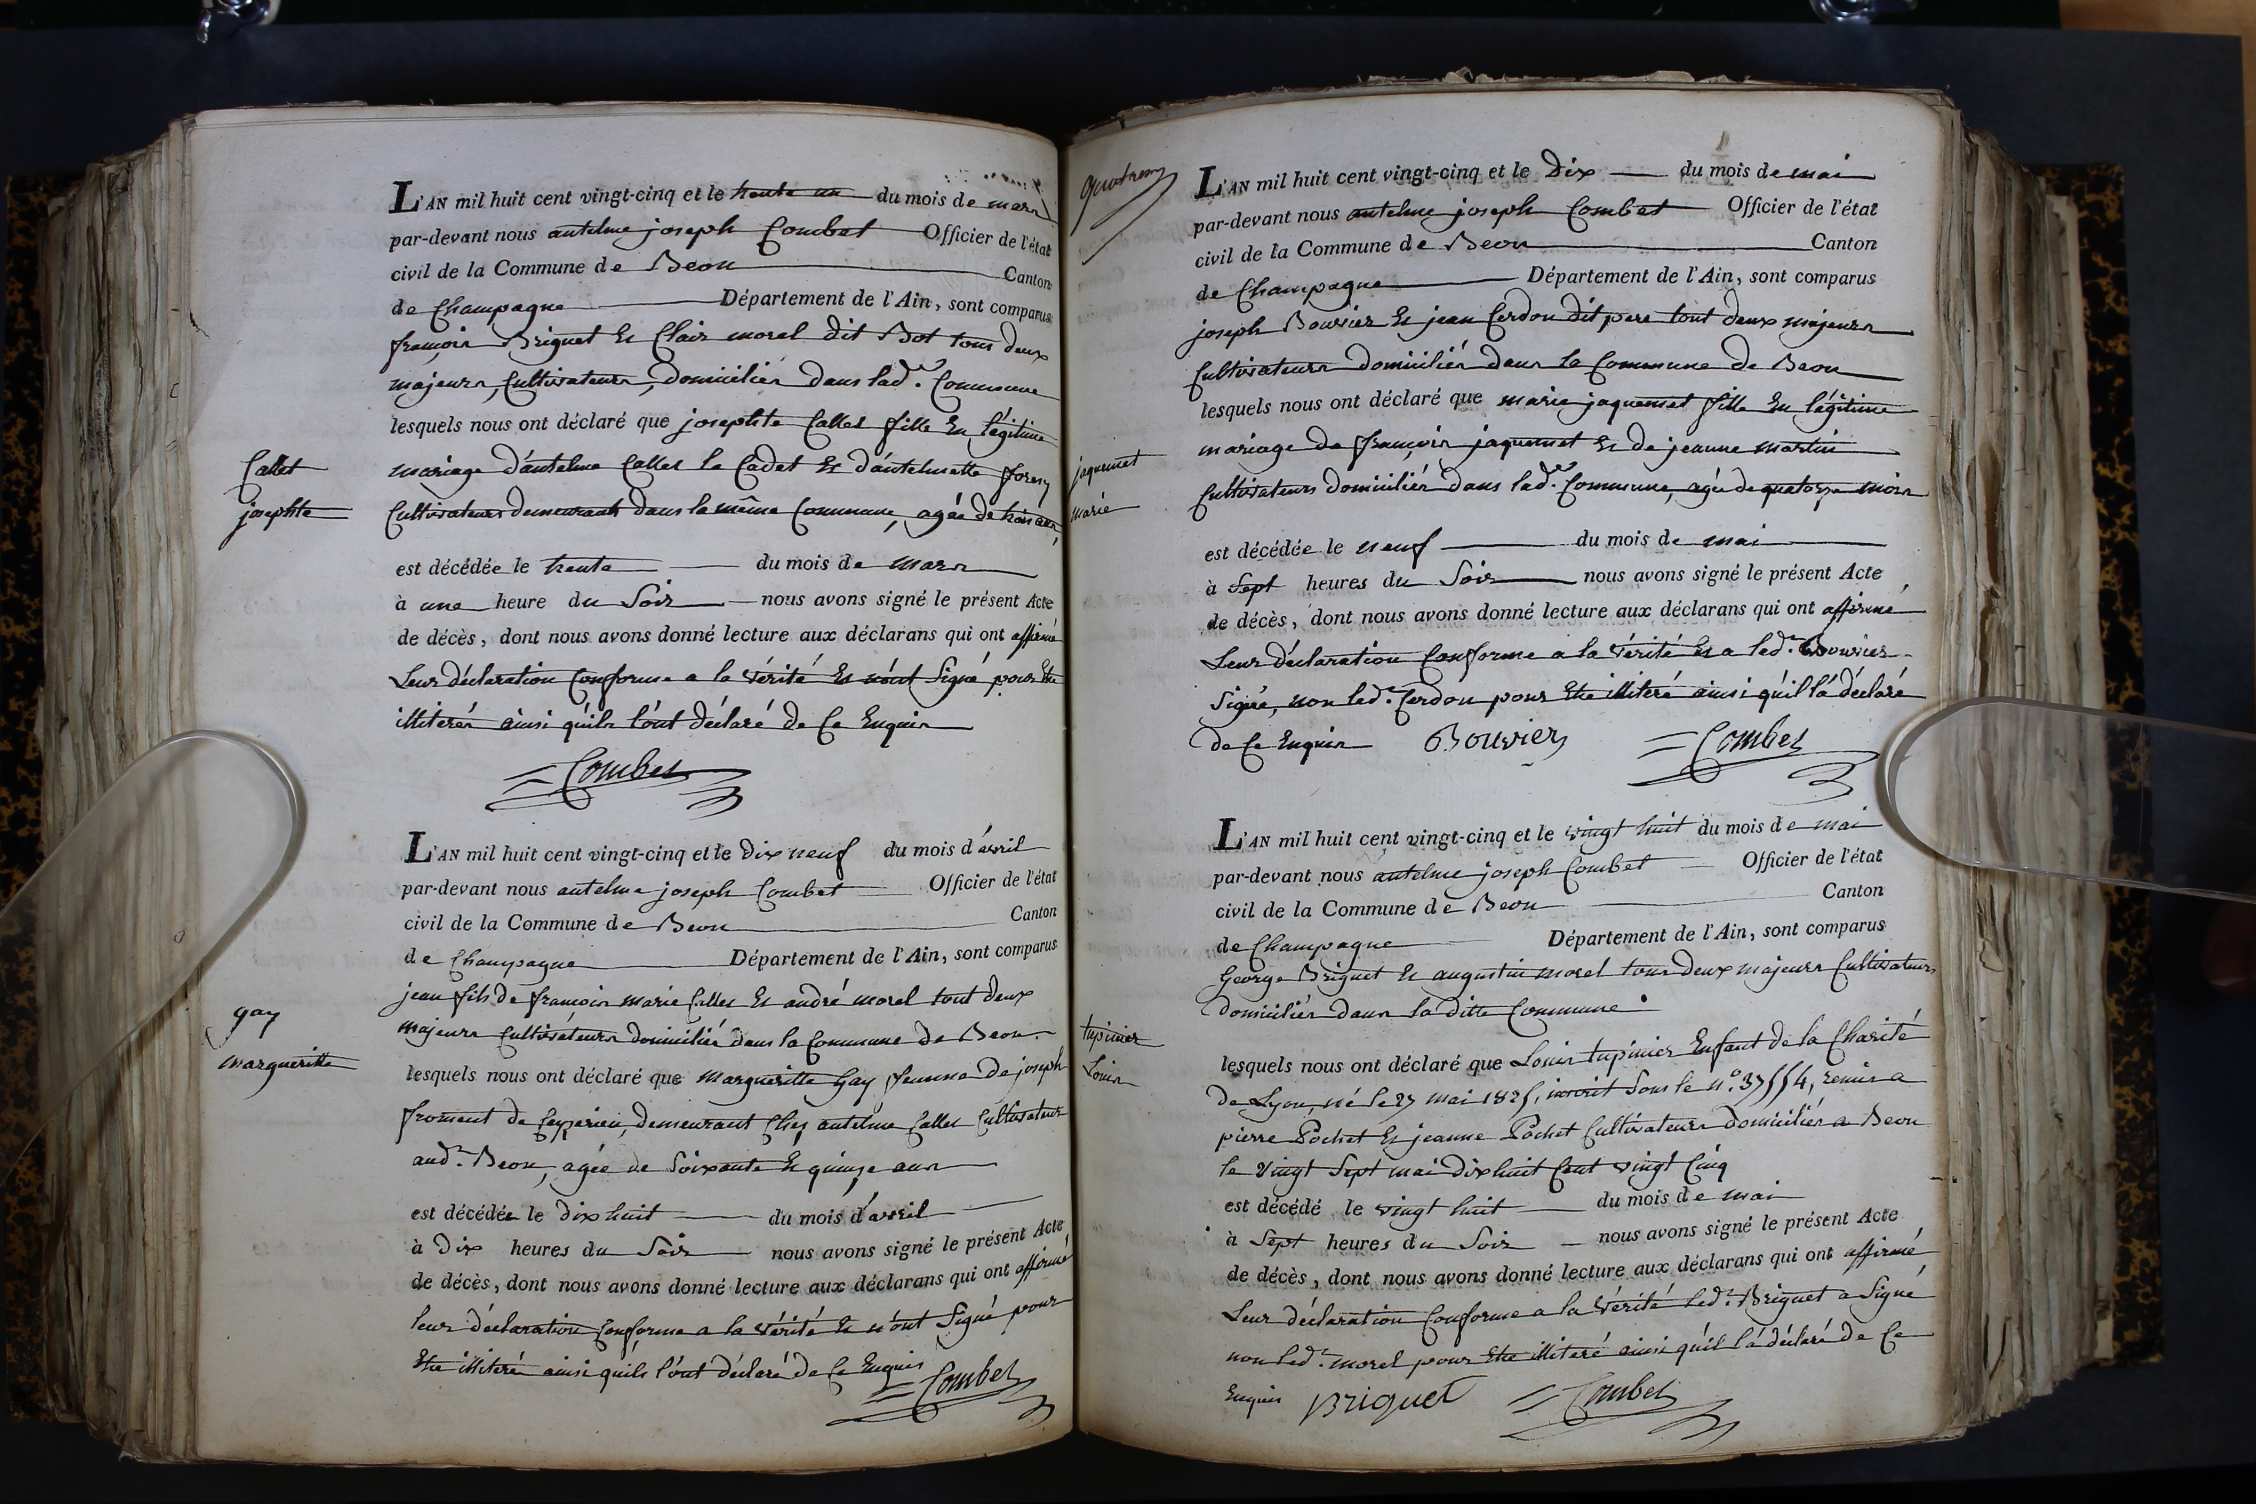 L'AN mil huit cent vingt-cinq et le trente un du mois de mars
par-devant nous antelme joseph Combet Officier de l'état
civil de la Commune de Beon Canton
de Champagne Département de l'Ain, sont comparus
françois Briguet et Clair morel dit Bot tous deux
majeurs, Cultivateurs, domiciliés dans lad.e Commune
lesquels nous ont déclaré que josephte Callet fille En légitime
Callet
josephte
mariage d'antelme Callet le Cadet et d'antelmette forest
Cultivateurs demeurants dans la même Commune, agée de trois ans,
est décédée le trente du mois de mars
à une heure du Soir nous avons signé le présent Acte
de décès, dont nous avons donné lecture aux déclarans qui ont affirmé
Leur déclaration Conforme a la vérité et n'ont Signé pour Etre
illiterés ainsi qu'ils l'ont déclaré de Ce Enquis
Combet
L'AN mil huit cent vingt-cinq et le dix neuf du mois d'avril
par-devant nous antelme joseph Combet Officier de l'état
civil de la Commune de Beon Canton
de Champagne Département de l'Ain, sont comparus
jean fils de françois marie Callet et andré morel tout deux
majeurs Cultivateurs domiciliés dans la Commune de Beon
gay
margueritte
lesquels nous ont déclaré que margueritte Gay femme de joseph
froment de Ceyzerieu, demeurant Chez antelme Callet Cultivateur
aud.t Beon, agée de Soixante et quinze ans
est décédée le dix huit du mois d'avril
à dix heures du Soir nous avons signé le présent Acte
de décès, dont nous avons donné lecture aux déclarans qui ont affirmé
leur déclaration Conforme a la vérité et n'ont Signé pour
Etre illiteré ainsi qu'ils l'ont déclaré de Ce Enquis
Combet
L'AN mil huit cent vingt-cinq et le Dix du mois de mai
par-devant nous antelme joseph Combet Officier de l'état
civil de la Commune de Beon Canton
de Champagne Département de l'Ain, sont comparus
joseph Bouvier et jean Cerdon dit pere tout deux majeurs
Cultivateurs domiciliés dans la Commune de Beon
lesquels nous ont déclaré que marie jaquemet fille En légitime
jaquemet
marie
mariage de françois jaquemet et de jeanne martin
Cultivateurs domiciliés dans lad.e Commune, agée de quatorze mois
est décédée le neuf du mois de mai
à Sept heures du Soir nous avons signé le présent Acte
de décès, dont nous avons donné lecture aux déclarans qui ont affirmé
Leur déclaration Conforme a la vérité et a led.t Bouvier
Signé, non led.t Cerdon pour Etre illiteré ainsi qu'il l'a déclaré
de Ce Enquis Bouvier Combet
L'AN mil huit cent vingt-cinq et le vingt huit du mois de mai
par-devant nous antelme joseph Combet Officier de l'état
civil de la Commune de Beon Canton
de Champagne Département de l'Ain, sont comparus
George Briguet et augustin morel tous deux majeurs Cultivateurs
domiciliés dans la ditte Commune
tupinier
Louis
lesquels nous ont déclaré que Louis tupinier Enfant de la Charité
de Lyon, né le 27 mai 1825, inscrit Sous le n.o 37554, remis a
pierre Pochet et jeanne Pochet Cultivateurs domiciliés a Beon
le vingt Sept mai dix huit Cent vingt Cinq
est décédé le vingt huit du mois de mai
à Sept heures du Soir nous avons signé le présent Acte
de décès, dont nous avons donné lecture aux déclarans qui ont affirmé
Leur déclaration Conforme a la vérité led.t Briguet a Signé
non led.t morel pour Etre illiteré ainsi qu'il l'a déclaré de Ce
Enquis Briguet Combet